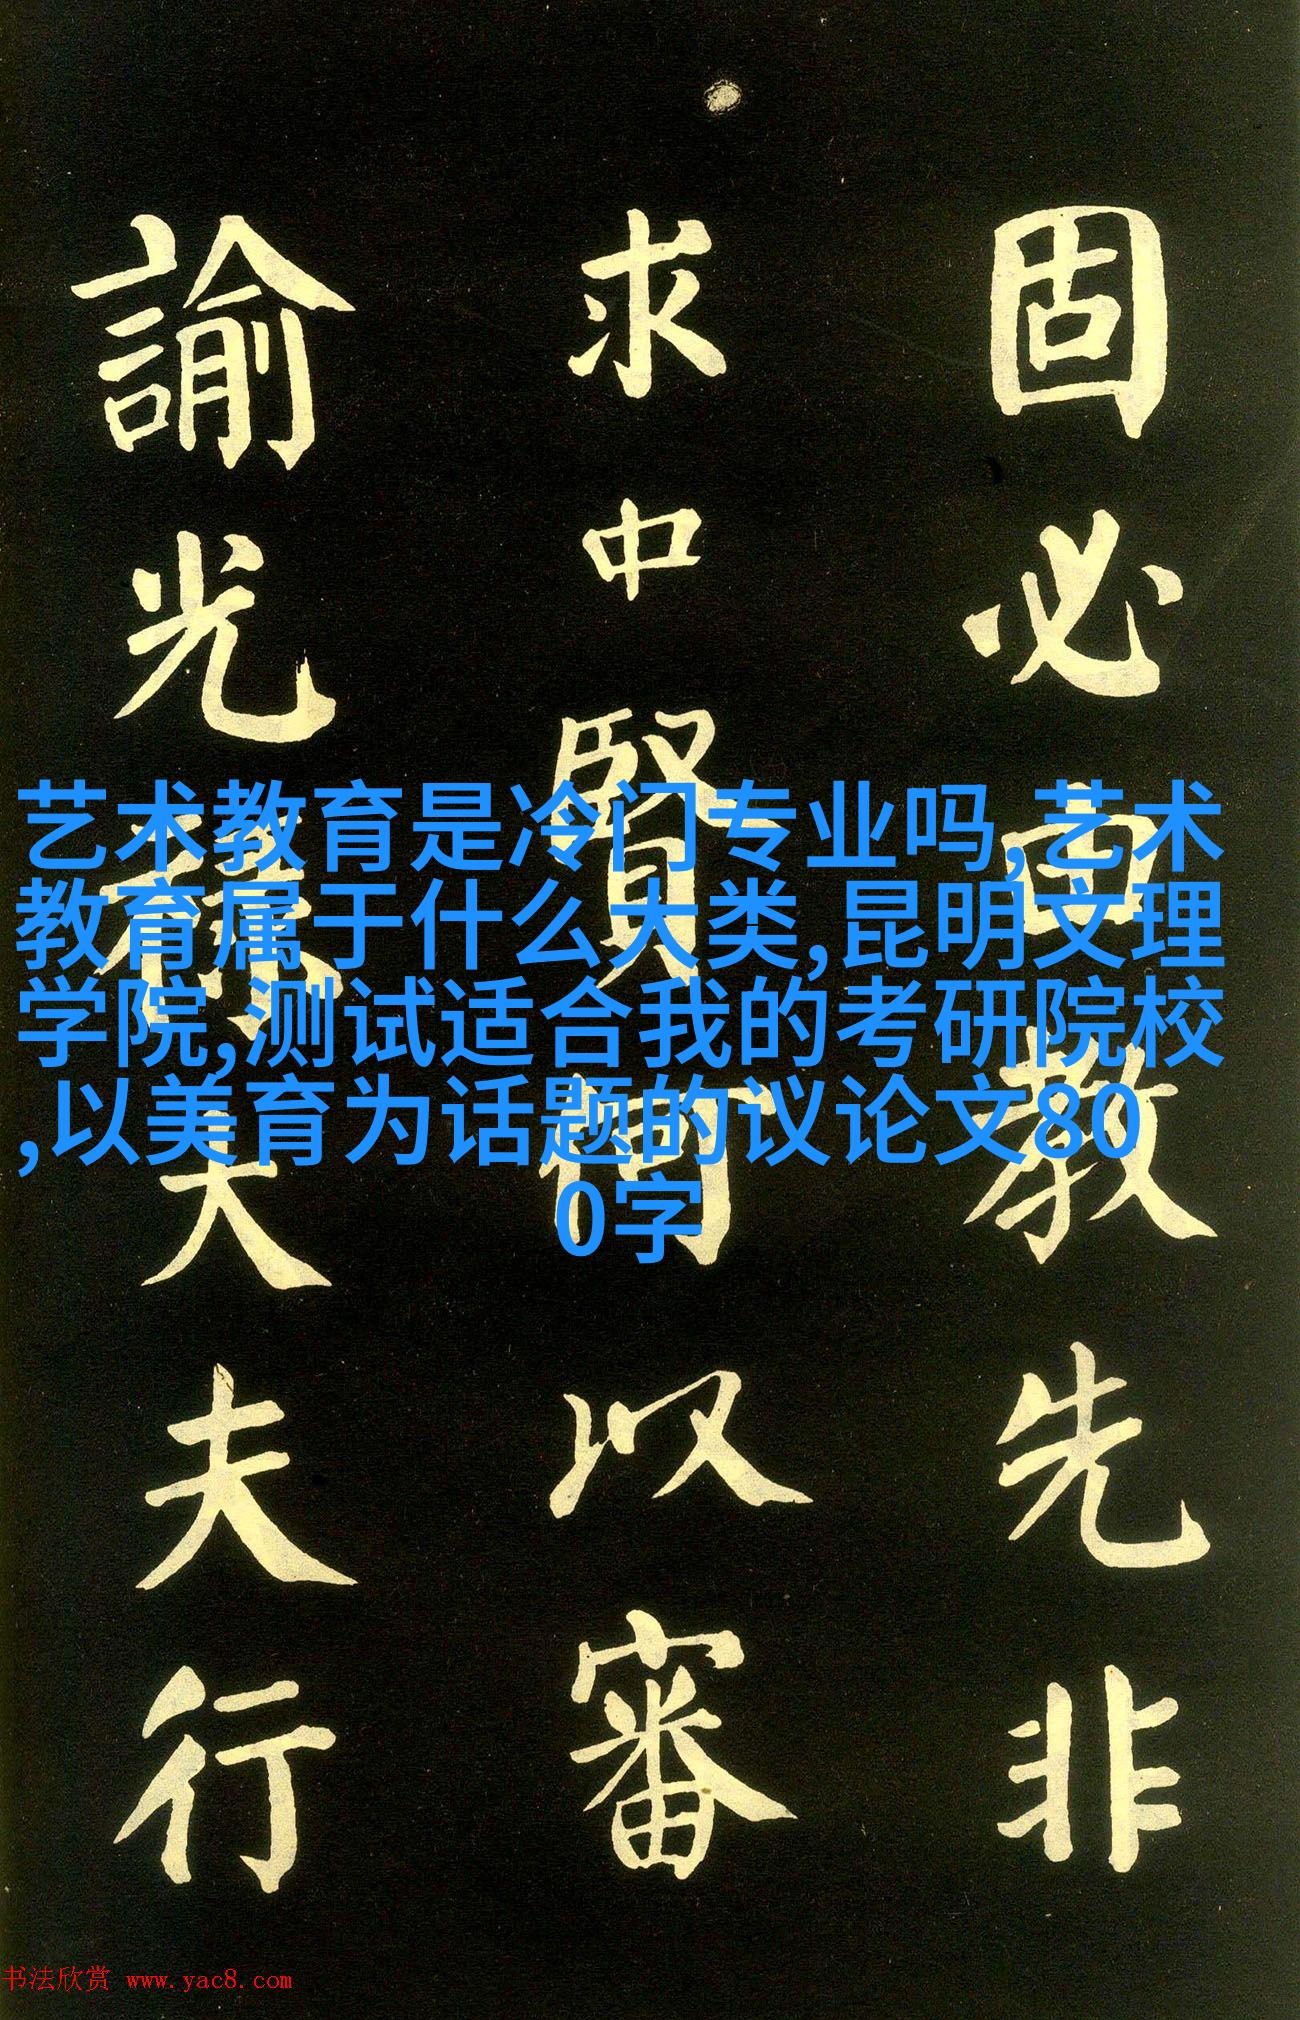 固必由教先非
求中賢何以審
諭光禄大夫行
艺术教育是冷门专业吗,艺术
教育属于什么大类,昆明文理
学院,测试适合我的考研院校
,以美育为话题的议论文80
0字
书法欣赏 www.yac8.com